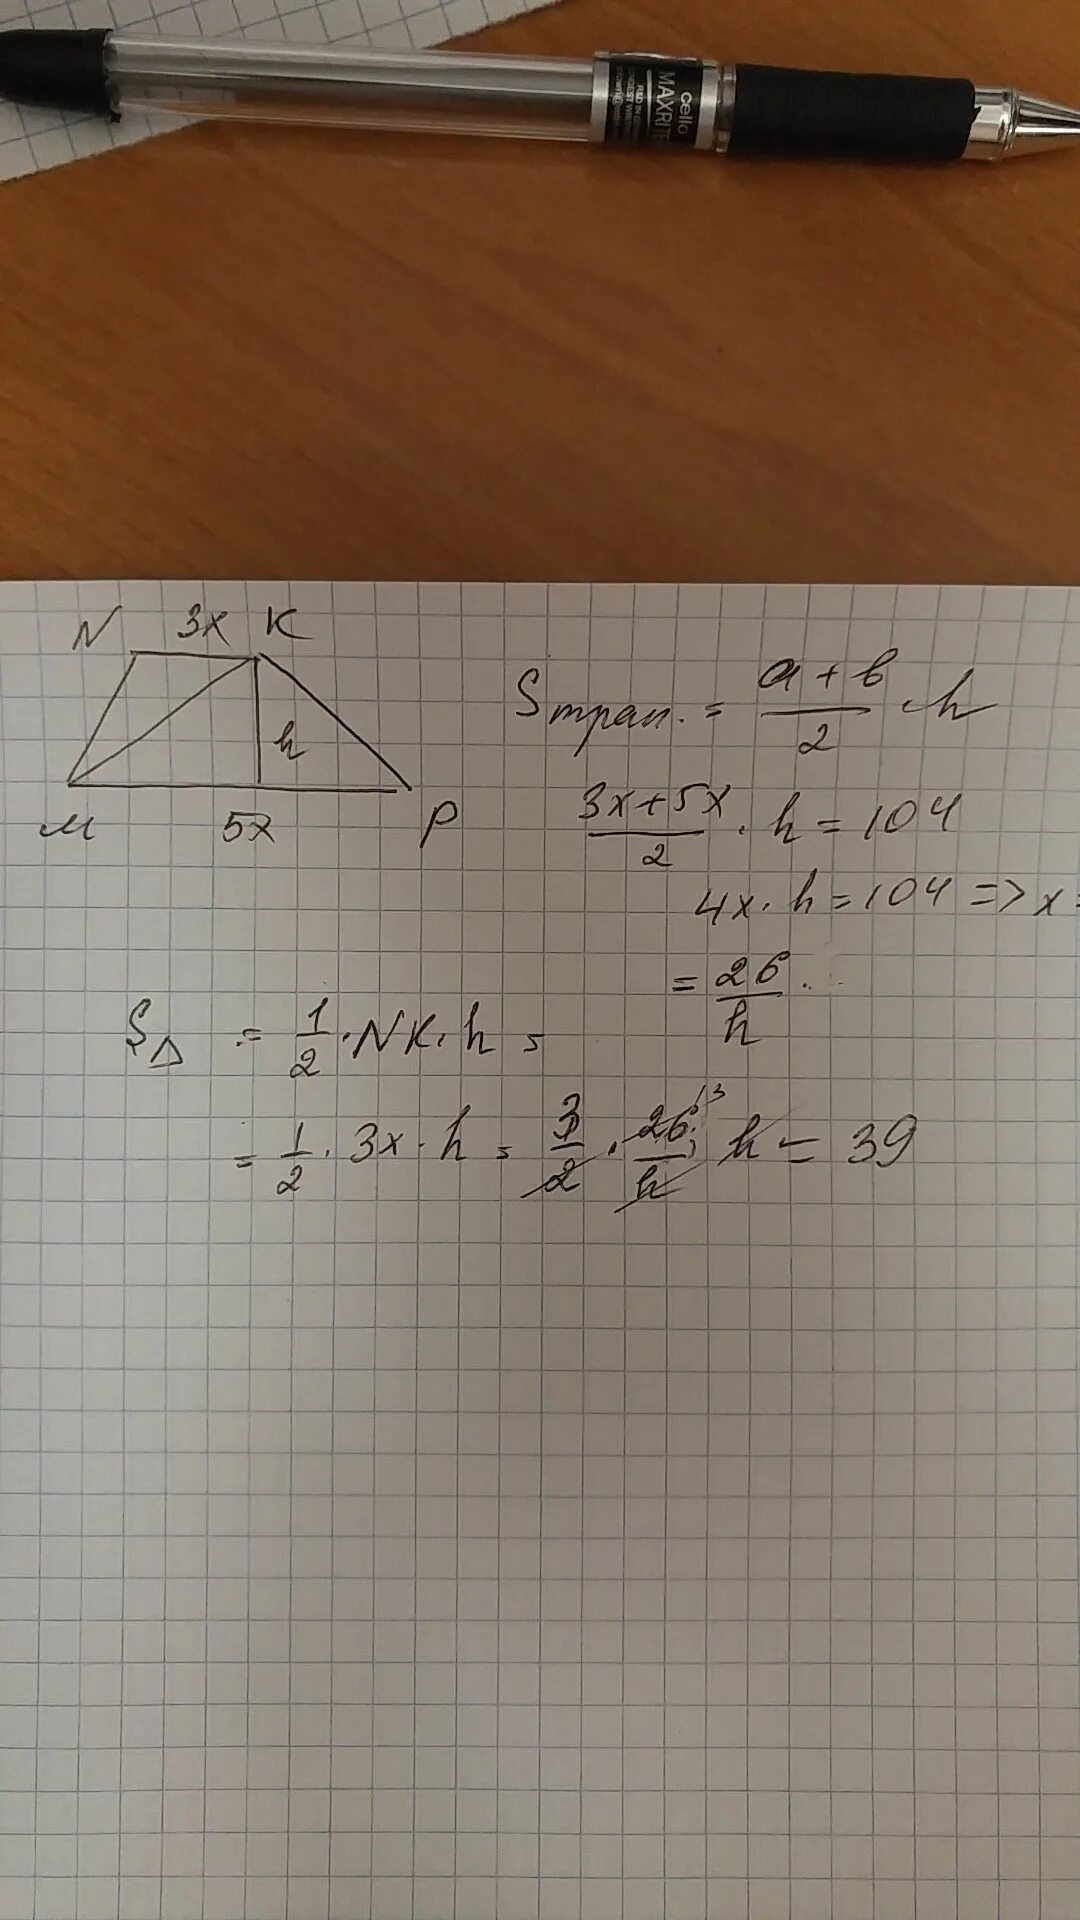 cello
MAXRITE
N 3x K
h
M 5x P
Sтрап. = (a + b)/2 · h
(3x + 5x)/2 · h = 104
4x · h = 104 => x =
= 26/h
S△ = 1/2 · NK · h =
= 1/2 · 3x · h = 3/2 · 26/h · h = 39
13